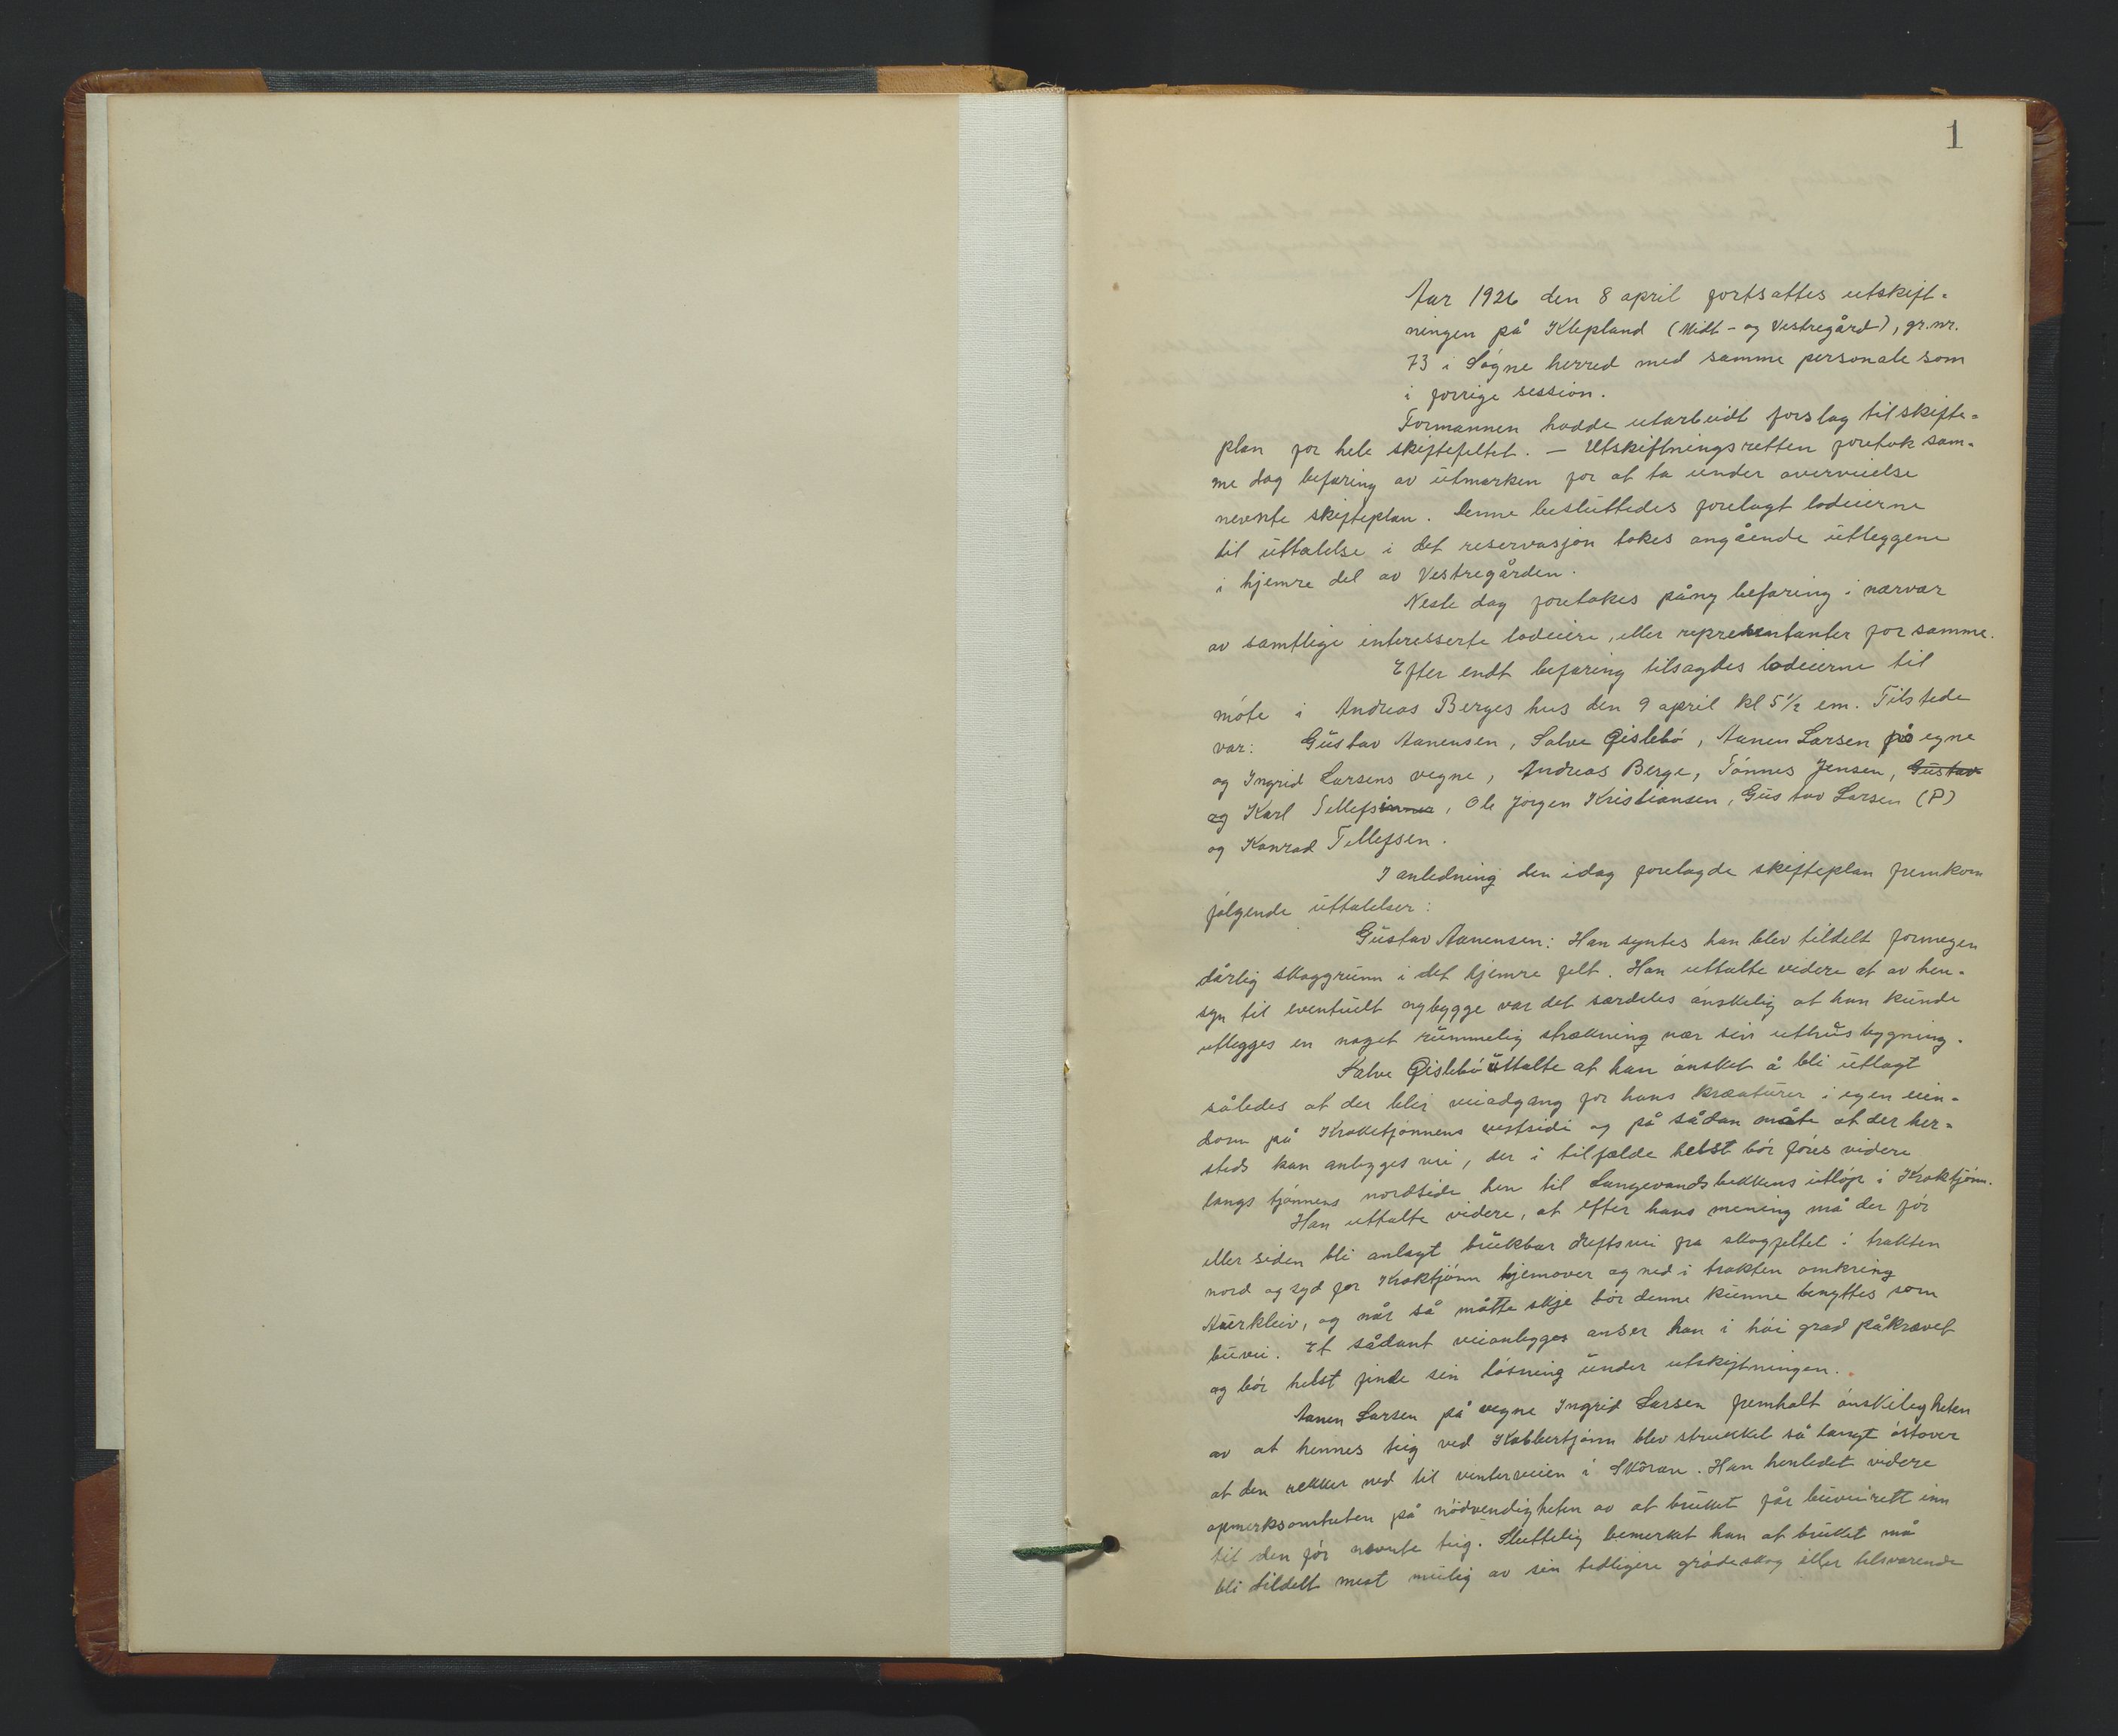 1
Aar 1926 den 8 april fortsattes utskift-
ningen på Klepland (Midt- og Vestregård), gr.nr.
73 i Søgne herred med samme personale som
i forrige session.
Formannen hadde utarbeidt forslag til skifte-
plan for hele skiftefeltet. — Utskiftningsretten foretok sam-
me dag befaring av utmarken for at ta under overveielse
nevnte skifteplan. Denne besluttedes forelagt lodeierne
til uttalelse i det reservasjon tokes angående utleggene
i hjemre del av Vestregården.
Neste dag foretokes påny befaring i nærvær
av samtlige interesserte lodeiere, eller representanter for samme.
Efter endt befaring tilsagdes lodeierne til
møte i Andreas Berges hus den 9 april kl 5½ em. Tilstede
var: Gustav Aanensen, Salve Gislebø, Aanen Larsen på egne
og Ingrid Larsens vegne, Andreas Berge, Tønnes Jensen, Gustav
og Karl Tellefsinner, Ole Jørgen Kristiansen, Gustav Larsen (P)
og Konrad Tellefsen.
I anledning den idag forelagde skifteplan fremkom
følgende uttalelser:
Gustav Aanensen: Han syntes han blev tildelt formegen
dårlig skoggrunn i det hjemre felt. Han uttalte videre at av hen-
syn til eventuelt nybygge var det særdeles ønskelig at han kunde
utlegges en noget rummelig strækning nær sin uthusbygning.
Salve Gislebø uttalte at han ønsket å bli utlagt
således at der blir veiadgang for hans kreaturer i egen eien-
dom på Kroketjønnens vestside og på sådan måte at der her-
steds kan anlegges vei, der i tilfælde helst bør føres videre
langs tjønnens nordside hen til Langevandsbekkens utløp i Kroktjønn.
Han uttalte videre, at efter hans mening må der før
eller siden bli anlagt brukbar driftsvei fra skogfeltet i trakten
nord og syd for Kroktjønn hjemover og ned i trakten omkring
Aurkleiv, og når så måtte skje bør denne kunne benyttes som
buvei. Et sådant veianlegges anser han i høi grad påkrævet
og bør helst finde sin løsning under utskiftningen.
Aanen Larsen på vegne Ingrid Larsen fremholt ønskeligheten
av at hennes teig ved Kabbertjønn blev strukket så langt østover
at den rekker ned til vinterveien i Skøran. Han henledet videre
opmerksomheten på nødvendigheten av at bruket får buveirett inn
til den før nevnte teig. Sluttelig bemerket han at bruket må
bli tildelt mest mulig av sin tidligere grødeskog eller tilsvarende